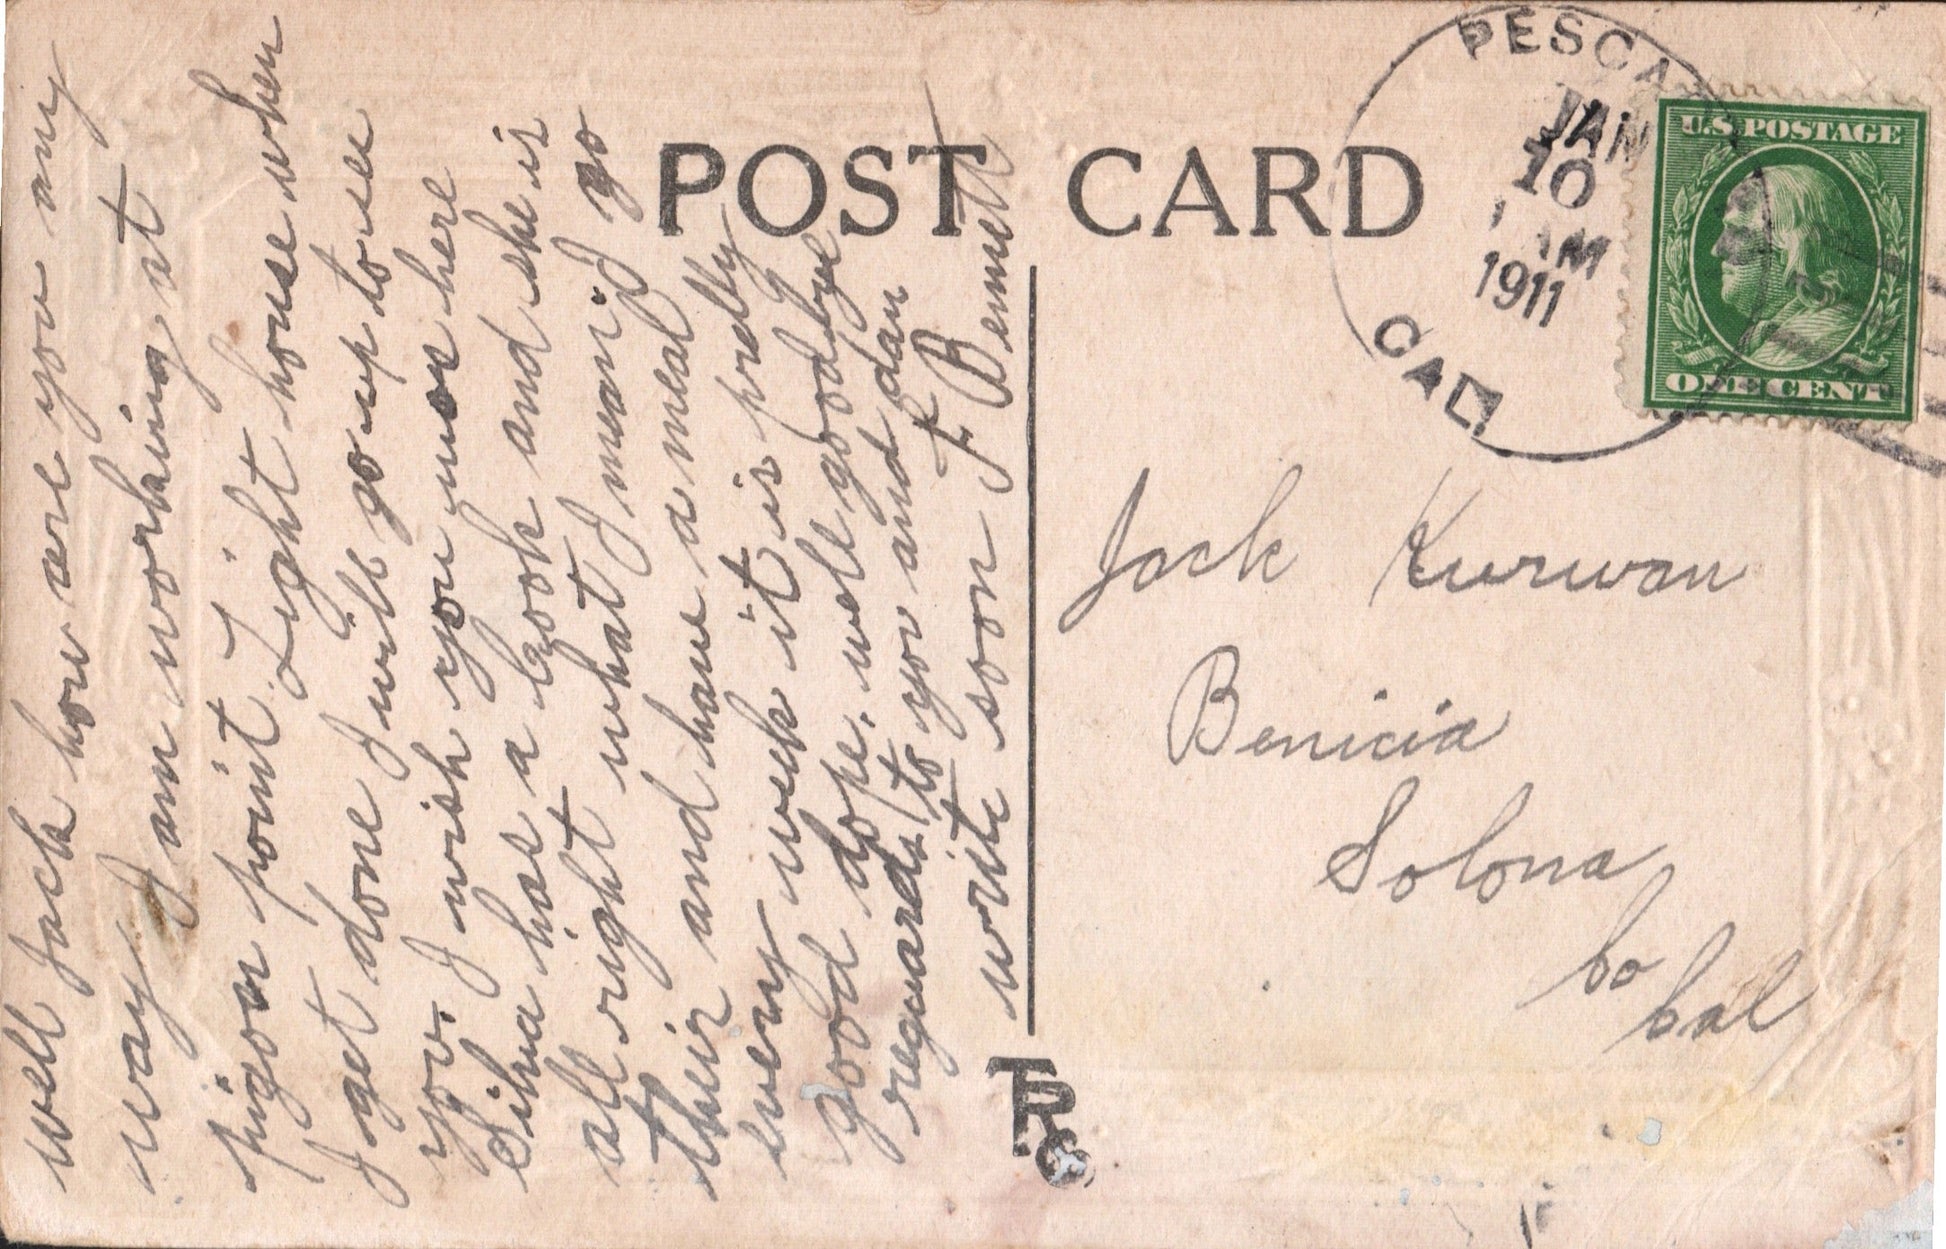 POST CARD
PESCA
JAN
10
AM
1911
CAL
U.S. POSTAGE
ONE CENT
well Jack how are you any
way I am working at
pigon point Light house when
I get done I will go up to see
you. I wish you was here
Silva has a cook and she is
all right what I mean. I go
their and have a meal
every week it is prelly
good dope. well goodbye
reguards to you and dan
write soon F Bennett
Jack Kurwan
Benicia
Solona
Co
Cal
TRG